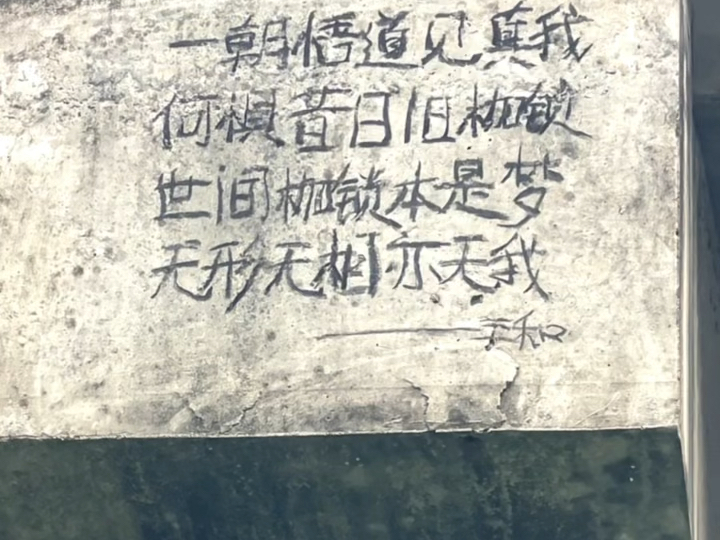 一朝悟道见真我
何惧昔日旧枷锁
世间枷锁本是梦
无形无相亦无我
——于和